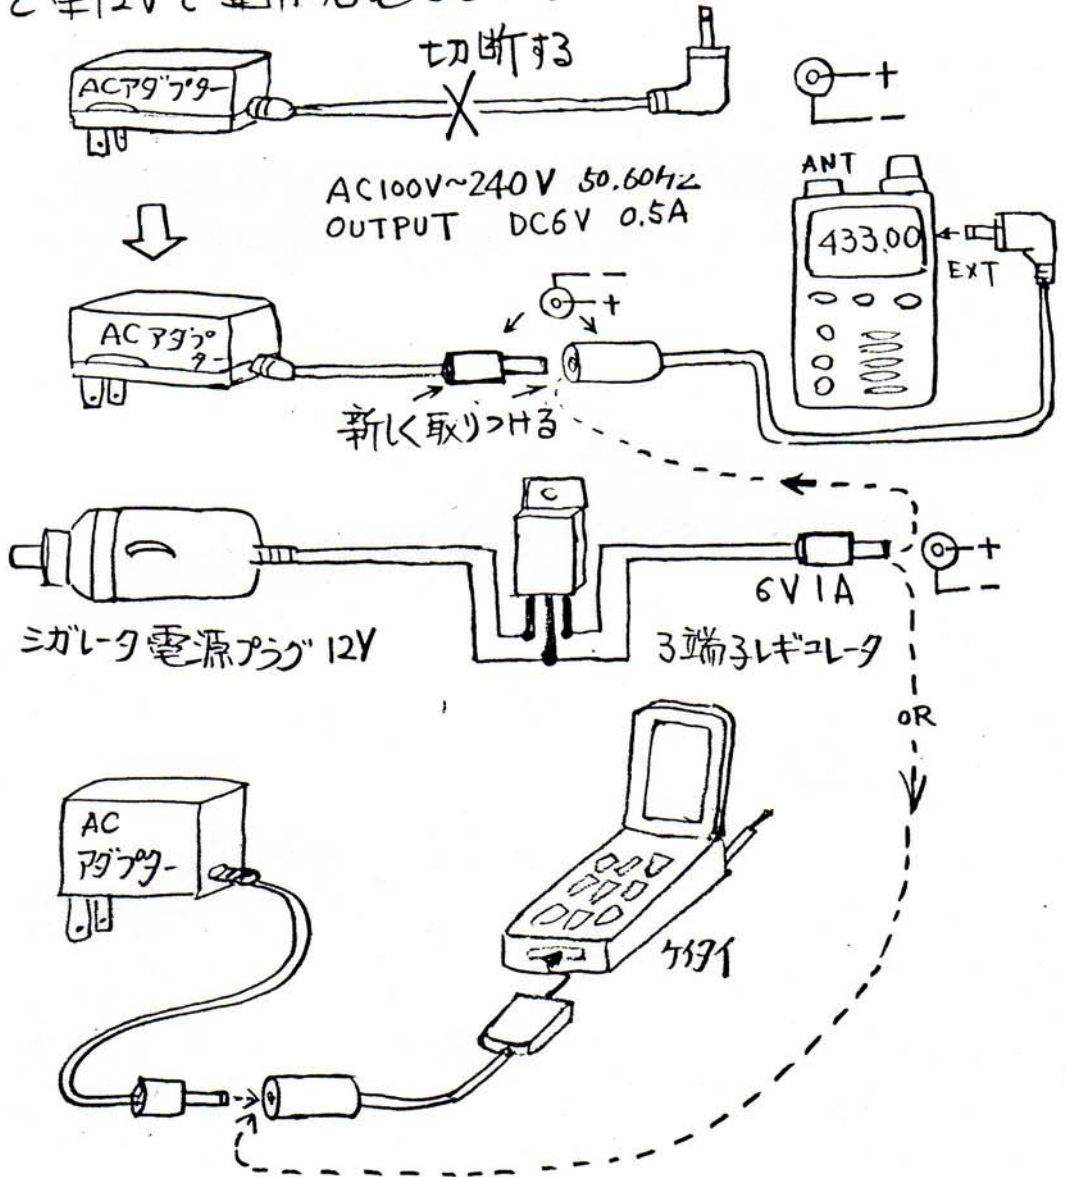 と車12Vで
切断する
ACアダプター
+
-
AC100V~240V 50.60Hz
OUTPUT DC6V 0.5A
ANT
433.00
EXT
-
+
ACアダプター
新しく取りつける
C
+
-
6V 1A
シガレータ電源プラグ 12V
3端子レギュレータ
OR
AC
アダプター
ケイタイ